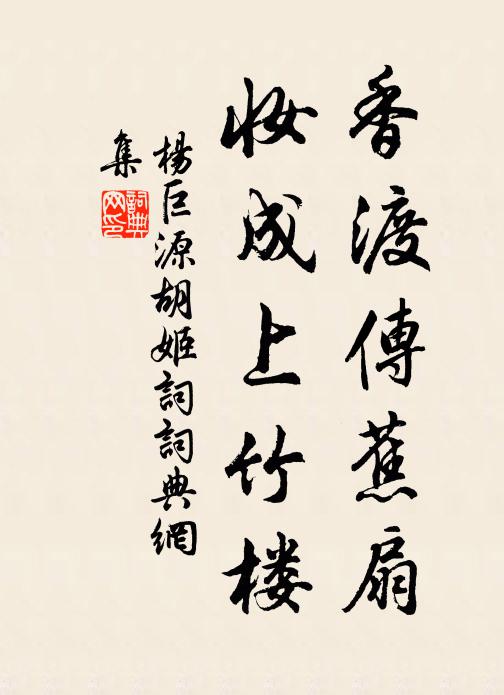 香渡傳蕉扇
妝成上竹楼
楊巨源胡姬詞詞典網
集
詞典
网印